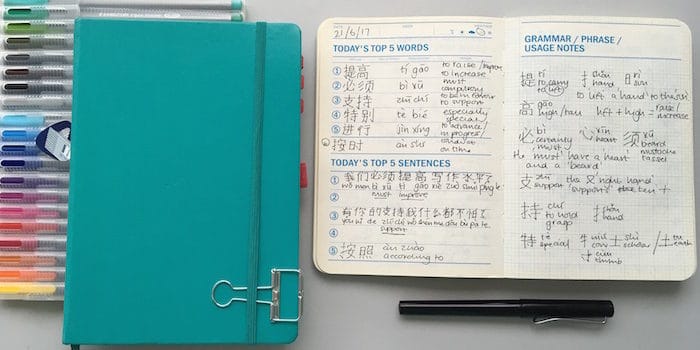 DATE
21/6/17
TODAY'S TOP 5 WORDS
① 提高 tí gāo to raise / improve
to increase
② 必须 bì xū must
compulsory
③ 支持 zhī chí to be in favour
to support
④ 特别 tè bié especially
special
⑤ 进行 jìn xíng to advance/
in progress/
按时 àn shí on time
TODAY'S TOP 5 SENTENCES
① 我们必须提高写作水平了
wǒ men bì xū tí gāo xiě zuò shuǐ píng le
② must improve
③ 有你的支持我什么都不怕了
yǒu nǐ de zhī chí wǒ shén me dōu bù pà le
support
④
⑤ 按照 àn zhào
according to
GRAMMAR / PHRASE /
USAGE NOTES
提 tí to carry to lift 扌 shǒu hand 日 rì sun
to lift a hand to the sun
高 gāo high/tall left + high = raise/increase
必 bì certainly must 心 xīn heart 须 xū beard mustache tassel
He 'must' have a heart
and a 'beard'
支 zhī support the 'right hand'
'supports' the ten 十
持 chí to hold grasp 扌 shǒu hand
特 tè special 牛 niú cow 土 shì scholar / 土 tǔ earth
寸 cùn thumb